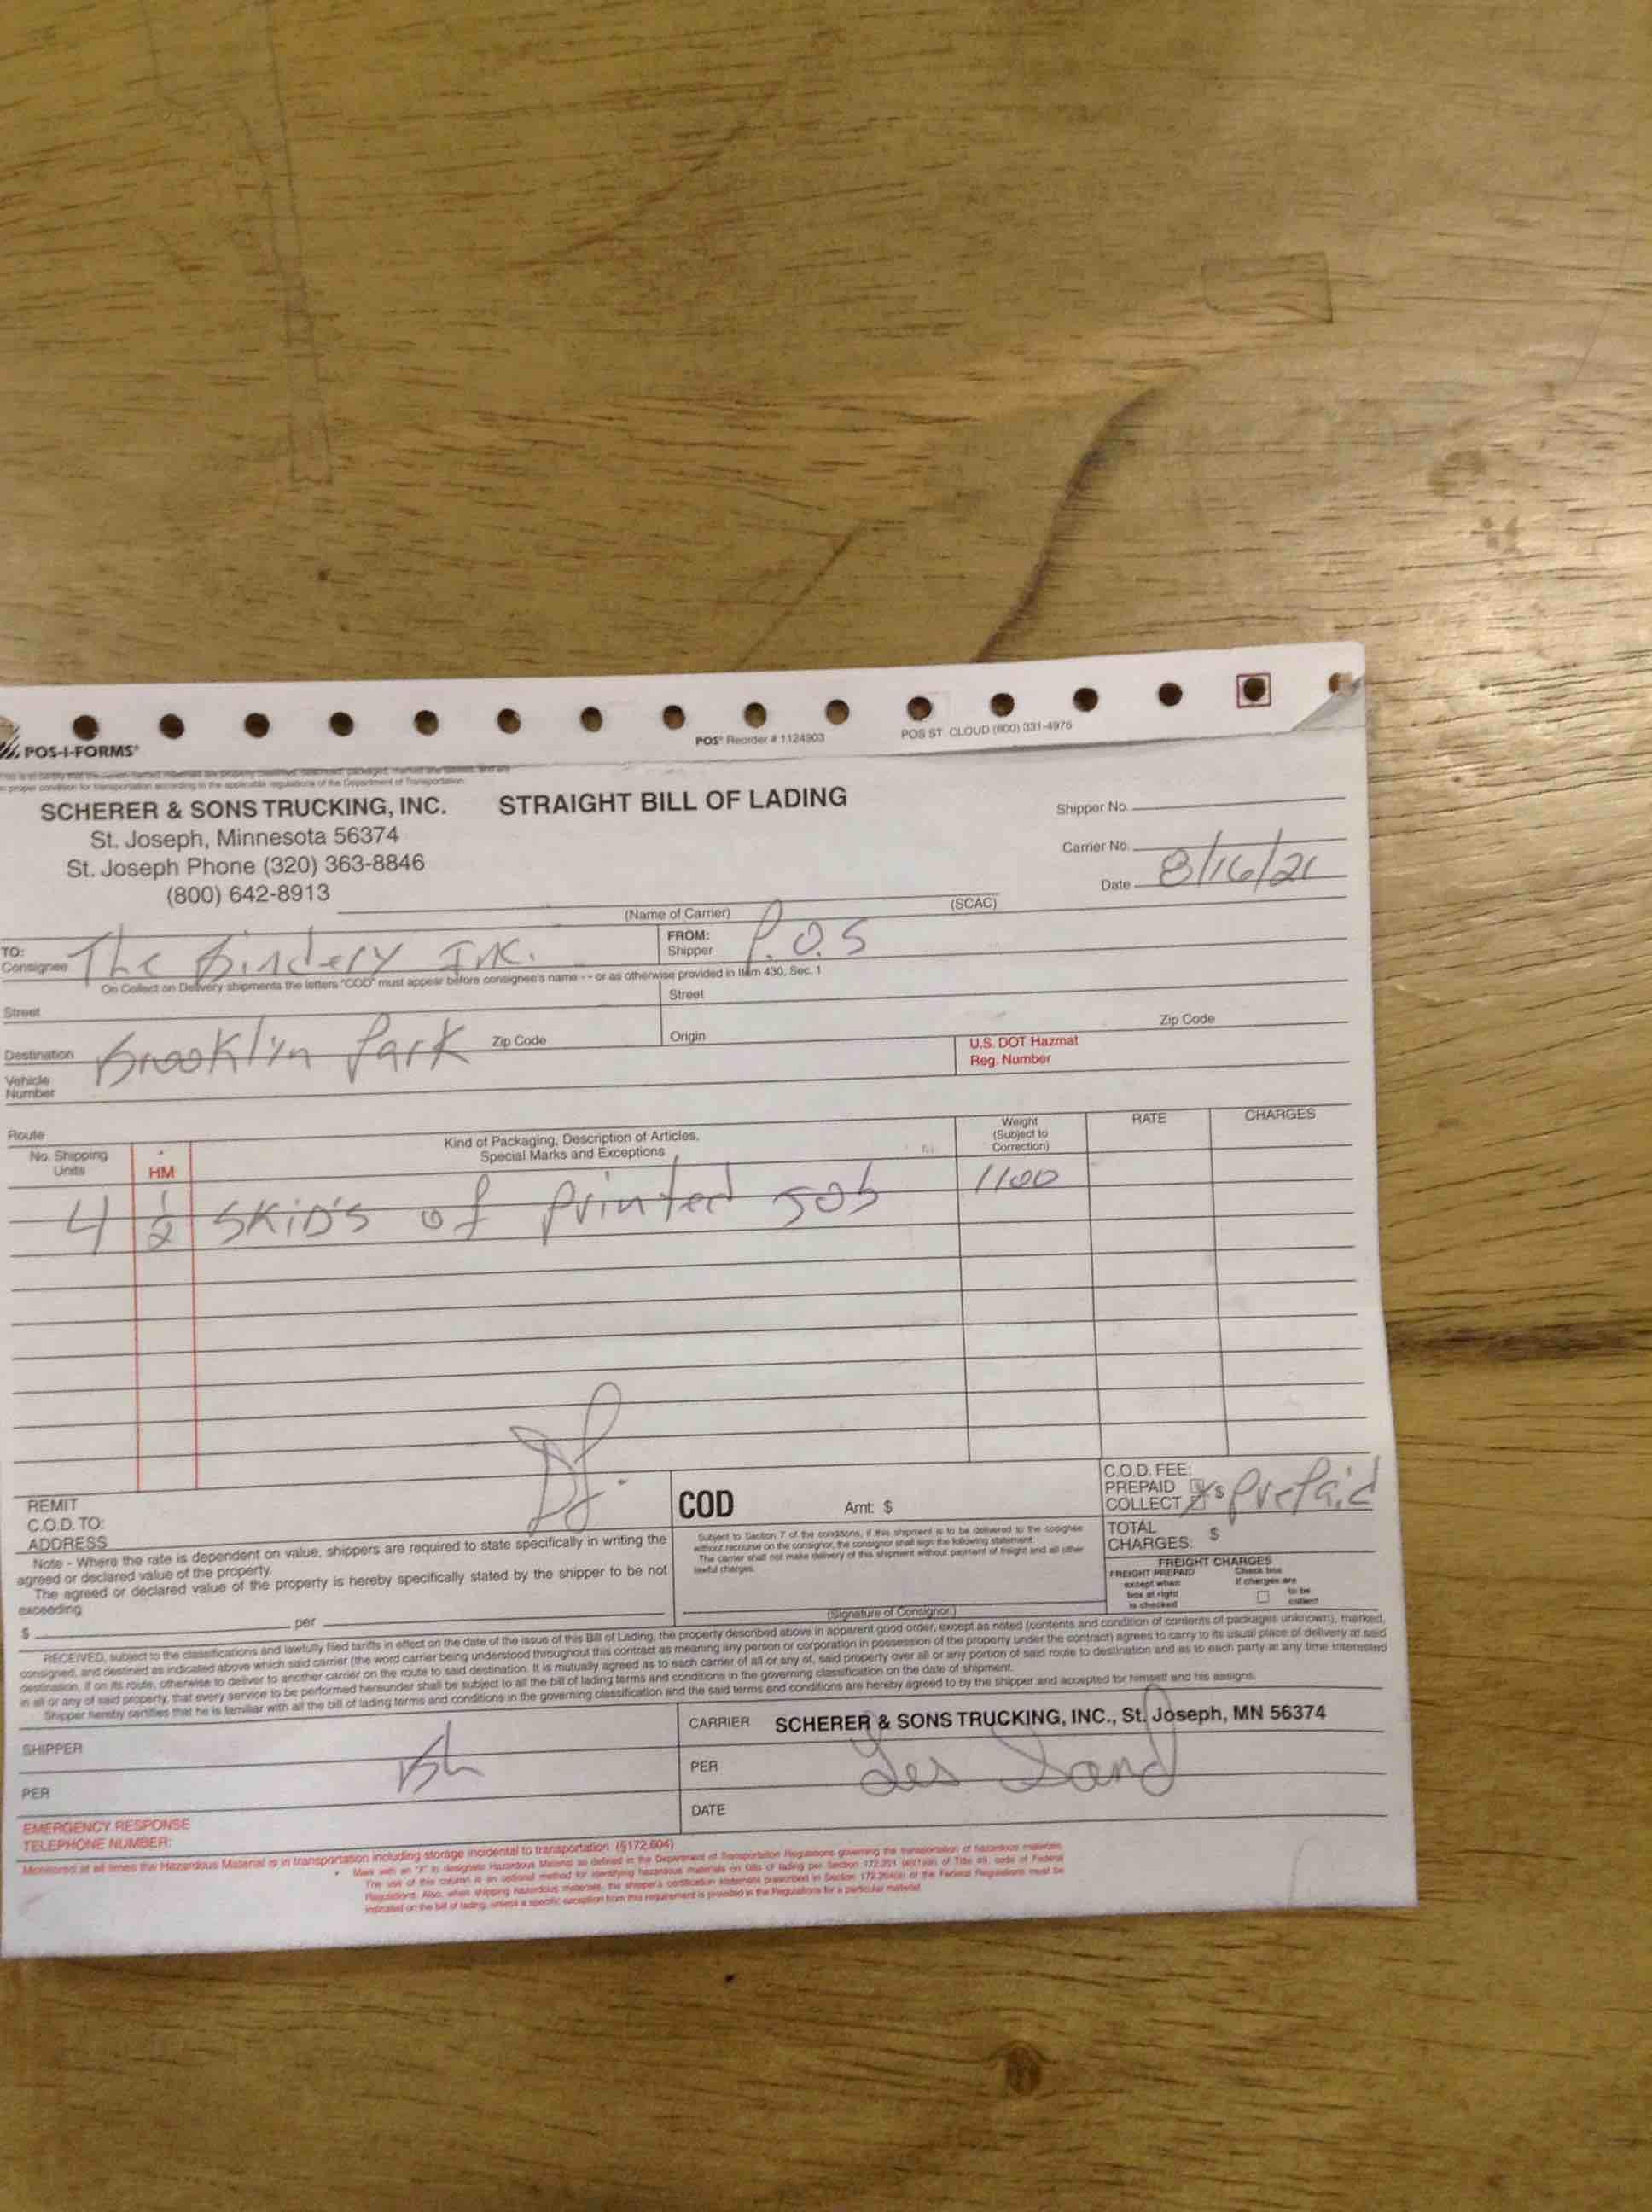 POS-I-FORMS®
POS® Reorder # 1124903
POS ST. CLOUD (800) 331-4976
This is to certify that the herein named materials are properly classified, described, packaged, marked and labeled, and are
in proper condition for transportation according to the applicable regulations of the Department of Transportation.
SCHERER & SONS TRUCKING, INC.
STRAIGHT BILL OF LADING
St. Joseph, Minnesota 56374
St. Joseph Phone (320) 363-8846
(800) 642-8913
Shipper No.
Carrier No.
Date 8/16/21
(Name of Carrier)
(SCAC)
TO: Consignee The Bindery Inc.
FROM: Shipper P.O.S
On Collect on Delivery shipments the letters "COD" must appear before consignee's name - - or as otherwise provided in Item 430, Sec. 1
Street
Street
Destination Brooklyn Park Zip Code
Origin
Zip Code
U.S. DOT Hazmat
Reg. Number
Vehicle
Number
Route
No. Shipping
Units
*
HM
Kind of Packaging, Description of Articles,
Special Marks and Exceptions
Weight
(Subject to
Correction)
RATE
CHARGES
4 1/2 SKiD'S of printed job 1100
REMIT
C.O.D. TO:
ADDRESS
COD Amt: $
C.O.D. FEE:
PREPAID
COLLECT $ Prepaid
Note - Where the rate is dependent on value, shippers are required to state specifically in writing the
agreed or declared value of the property.
The agreed or declared value of the property is hereby specifically stated by the shipper to be not
exceeding
$ per
Subject to Section 7 of the conditions, if this shipment is to be delivered to the consignee
without recourse on the consignor, the consignor shall sign the following statement:
The carrier shall not make delivery of this shipment without payment of freight and all other
lawful charges.
(Signature of Consignor.)
TOTAL
CHARGES: $
FREIGHT CHARGES
FREIGHT PREPAID
except when
box at right
is checked
Check box
if charges are
to be
collect
RECEIVED, subject to the classifications and lawfully filed tariffs in effect on the date of the issue of this Bill of Lading, the property described above in apparent good order, except as noted (contents and condition of contents of packages unknown), marked,
consigned, and destined as indicated above which said carrier (the word carrier being understood throughout this contract as meaning any person or corporation in possession of the property under the contract) agrees to carry to its usual place of delivery at said
destination, if on its route, otherwise to deliver to another carrier on the route to said destination. It is mutually agreed as to each carrier of all or any of, said property over all or any portion of said route to destination and as to each party at any time interested
in all or any of said property, that every service to be performed hereunder shall be subject to all the bill of lading terms and conditions in the governing classification on the date of shipment.
Shipper hereby certifies that he is familiar with all the bill of lading terms and conditions in the governing classification and the said terms and conditions are hereby agreed to by the shipper and accepted for himself and his assigns.
SHIPPER
PER
CARRIER SCHERER & SONS TRUCKING, INC., St. Joseph, MN 56374
PER Les Sand
DATE
EMERGENCY RESPONSE
TELEPHONE NUMBER:
Monitored at all times the Hazardous Material is in transportation including storage incidental to transportation (§172.604)
* Mark with an "X" to designate Hazardous Material as defined in the Department of Transportation Regulations governing the transportation of hazardous materials.
The use of this column is an optional method for identifying hazardous materials on bills of lading per Section 172.201 (a)(1)(iii) of Title 49, code of Federal
Regulations. Also, when shipping hazardous materials, the shipper's certification statement prescribed in Section 172.204(a) of the Federal Regulations must be
indicated on the bill of lading, unless a specific exception from this requirement is provided in the Regulations for a particular material.